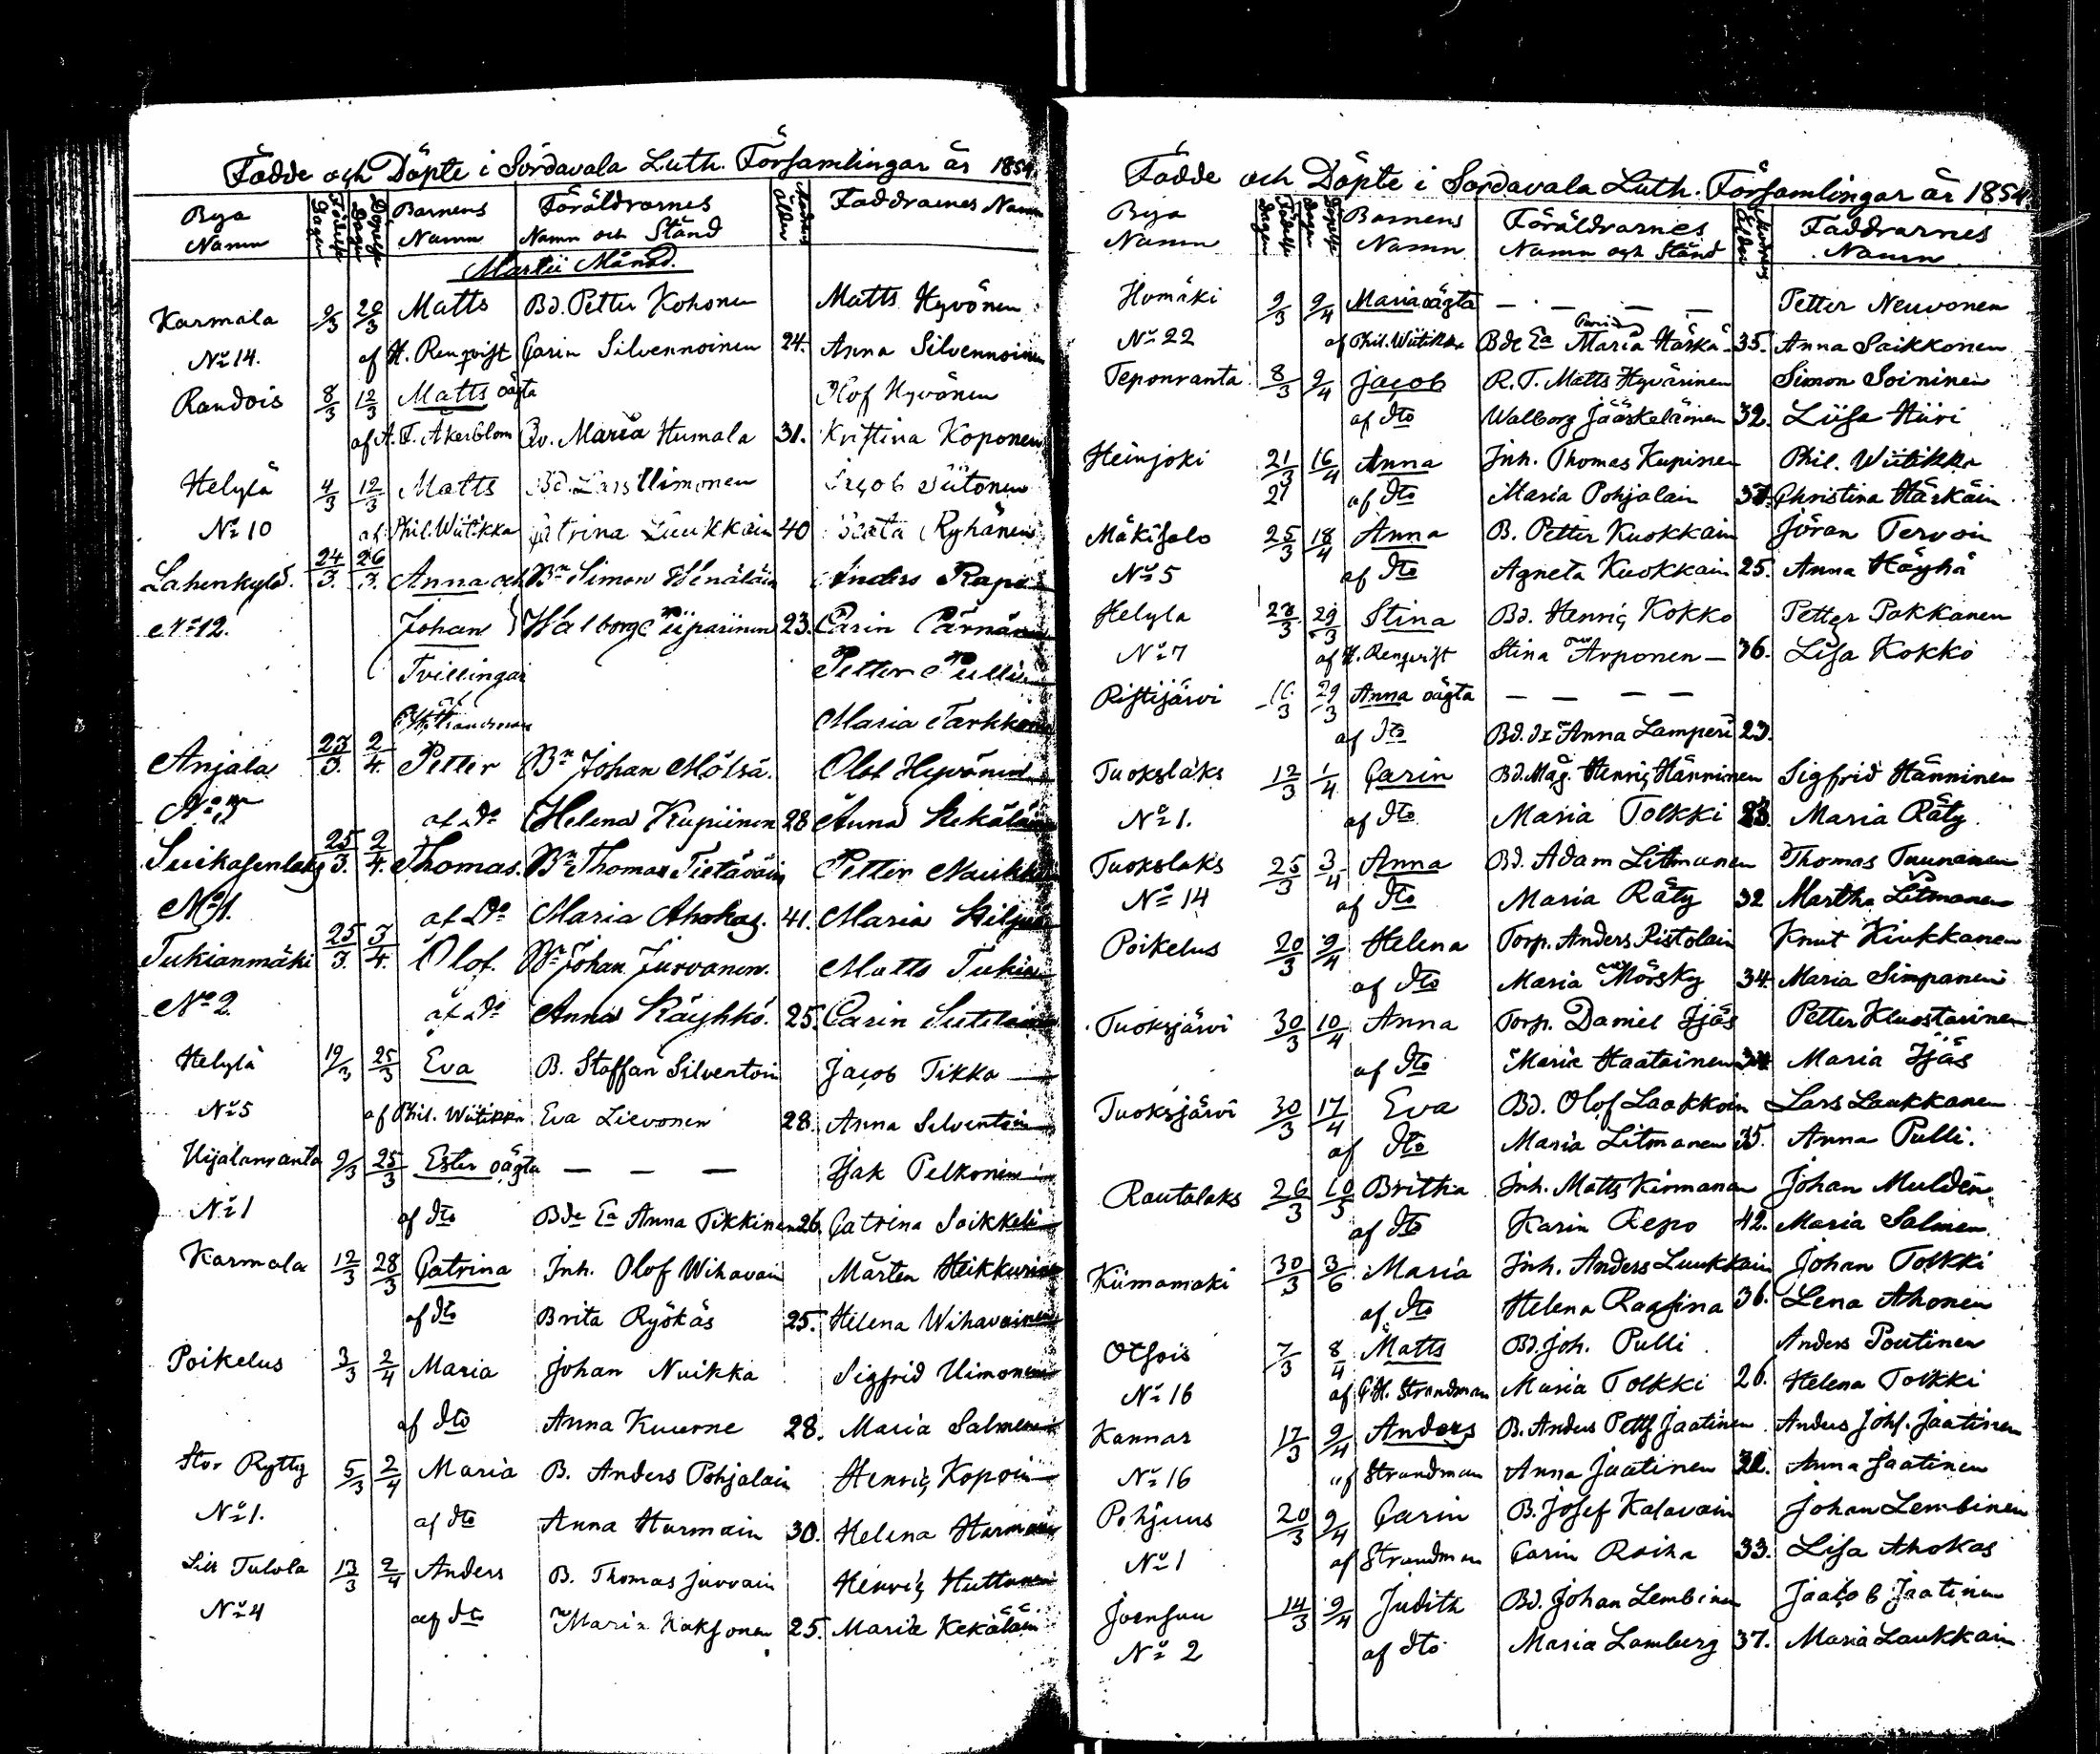 Födde och Döpte i Sordavala Luth. Församlingar år 1854.
Bya Namn Födelse Dagen Döpelse Dagen Barnens Namn Föräldrarnes Namn och Stånd Modrens ålder Faddrarnes Namn
Martii Månad.
Karmala 9/3 20/3 Matts Bd. Petter Kohonen Matts Hyvönen
No 14. af H. Renqvist Carin Silvennoinen 24. Anna Silvennoinen
Randois 8/3 12/3 Matts oägta Olof Hyvönen
af A. F. Åkerblom Qv. Maria Humala 31. Kristina Koponen
Helylä 4/3 12/3 Matts Bd. Lars Uimonen Jacob Siitonen
No 10 af Phil. Wiitikka Catrina Luukkain 40 Beata Ryhänen
Lahenkylä. 24/3. 26/3. Anna och Bn Simon Anders
No 12. Johan Walborg 23. Carin Pärnänen
Tvillingar Petter Pulli
af
Strandman Maria Tarkkonen
Anjala 23/3. 2/4. Petter Bn Johan Mölsä. Olof Hyvönen
No 3 af Do Helena Kupiinen 28 Anna Kekäläinen
Suikasenlaks 25/3. 2/4. Thomas. Bn Thomas Tietäväin Petter Naukkain
No 1. af Do Maria Ahokas. 41. Maria
Tukianmäki 25/3. 3/4. Olof. Bn Johan Jurvanen. Matts Tukia
No 2. af Do Anna Käyhkö. 25. Carin
Helylä 19/3 25/3 Eva B. Staffan Silventoin Jacob Tikka
No 5 af Phil. Wiitikka Eva Lievonen 28. Anna Silventoin
Uijalanranta 9/3 25/3 Ester oägta — — — Isak Pelkonen
No 1 af dto Bde Ea Anna Tikkinen 26. Catrina Soikkeli
Karmala 12/3 28/3 Catrina Inh. Olof Wihavain Mårten Heikkurinen
af dto Brita Ryökäs 25. Helena Wihavainen
Poikelus 3/3 2/4 Maria Johan Nuikka Sigfrid Uimonen
af dto Anna Kuurne 28. Maria Salmen
Stor Rytty 5/3 2/4 Maria B. Anders Pohjalain Henric Kopoin
No 1. af dto Anna Hurmain 30. Helena Hurmain
Lill Tulola 13/3 2/4 Anders B. Thomas Jurvain Henric Huttunen
No 4 af dto Maria Kaksonen 25. Maria Kekäläin
Födde och Döpte i Sordavala Luth. Församlingar år 1854.
Bya Namn Födelse dagen Döpelse dagen Barnens Namn Föräldrarnes Namn och Stånd Modrens Ålder Faddrarnes Namn
Humäki 9/3 9/4 Maria oägta — — — — Petter Neuvonen
No 22 af Phil. Wiitikka Bde Ea Carin Maria Härkä 35. Anna Saikkonen
Teponranta 8/3 9/4 Jacob R. T. Matts Hyvärinen Simon Soininen
af dto Walborg Jääskeläinen 32. Liisa Hiiri
Heinjoki 21/3 16/4 Anna Inh. Thomas Kupinen Phil. Wiitikka
21 af dto Maria Pohjalain 37. Christina Härkäin
Mäkisalo 25/3 18/4 Anna B. Petter Kuokkain Jöran Tervoin
No 5 af dto Agneta Kuokkain 25. Anna Käyhä
Helyla 28/3 29/3 Stina Bd. Henric Kokko Petter Pakkanen
No 7 af H. Renqvist Stina Arponen — 36. Lisa Kokko
Ristijärvi 16/3 29/3 Anna oägta — — — —
af dto Bd. dr Anna Lamperi 23.
Tuokslaks 12/3 1/4 Carin Bd. Måg. Henric Hänninen Sigfrid Hänninen
No 1. af dto Maria Tolkki 23. Maria Räty.
Tuokslaks 25/3 3/4 Anna Bd. Adam Litmanen Thomas Tuunanen
No 14 af dto Maria Räty 32 Martha Litmanen
Poikelus 20/3 9/4 Helena Torp. Anders Ristolain Knut Kiukkanen
af dto Maria Mörsky 34. Maria Simpanen
Tuoksjärvi 30/3 10/4 Anna Torp. Daniel Ijäs Petter Kluostarinen
af dto Maria Haatainen 34 Maria Ijäs
Tuoksjärvi 30/3 17/4 Eva Bd. Olof Laakkoin Lars Laukkanen
af dto Maria Litmanen 35. Anna Pulli.
Rautalaks 26/3 10/5 Britha Inh. Matts Kirmanen Johan Muldén
af dto Karin Repo 42. Maria Salmen
Kiimamäki 30/3 3/6 Maria Inh. Anders Luukkain Johan Tolkki
af dto Helena Raasina 36. Lena Ahonen
Otsois 7/3 8/4 Matts Bd. Joh. Pulli Anders Poutinen
No 16 af C. H. Strandman Maria Tolkki 26. Helena Tolkki
Kannas 17/3 9/4 Anders B. Anders Petts Jaatinen Anders Johs. Jaatinen
No 16 af Strandman Anna Jaatinen 32. Anna Jaatinen
Pohjuus 20/3 9/4 Carin B. Josef Kalavain Johan Lembinen
No 1 af Strandman Carin Roiha 33. Lisa Ahokas
Joensuu 14/3 9/4 Judith Bd. Johan Lembinen Jaacob Jaatinen
No 2 af dto Maria Lamberg 37. Maria Laukkain